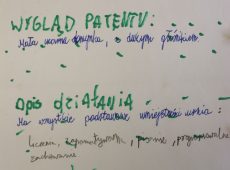 WYGLĄD PATENTU:
Mała czarna skrzynka, z dużym głośnikiem
OPIS działania
Ma wszystkie podstawowe umiejętności ucznia:
liczenie, zapamiętywanie, pisanie,
zachowanie